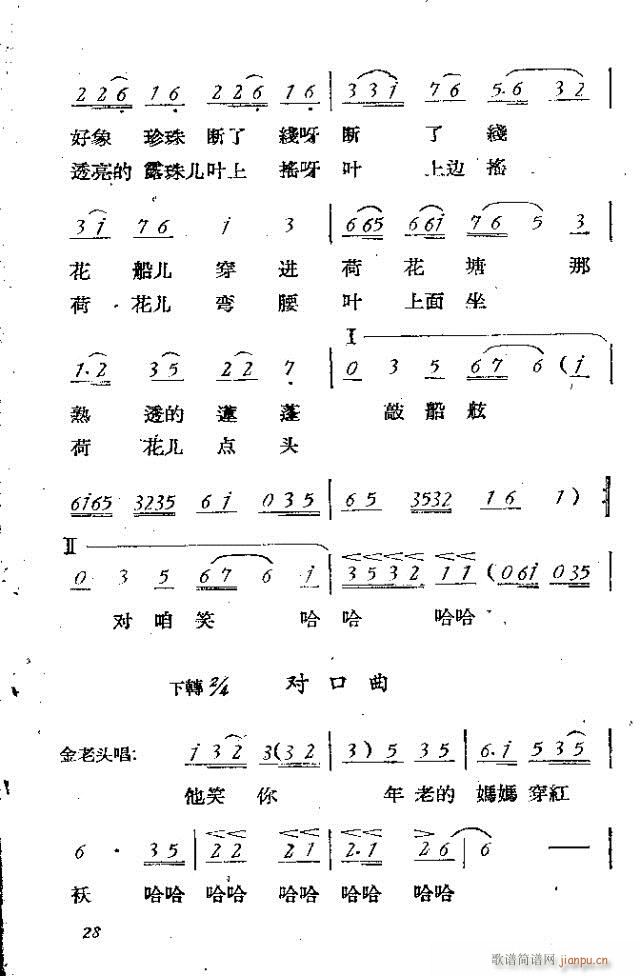 2 2 6 1 6 2 2 6 1 6 | 3 3 i 7 6 5·6 3 2
好象 珍珠 断了 綫呀 断 了 綫
透亮的 露珠儿叶上 搖呀 叶 上边 搖
3 i 7 6 i 3 | 6 65 6 6i 7 6 5 3
花 船儿 穿 进 荷 花 塘 那
荷 花儿 弯 腰 叶 上面 坐
I
1·2 3 5 2 2 7 | 0 3 5 6 7 6 ( i
熟 透的 蓮 蓬 敲 船 舷
荷 花儿 点 头
6i65 3235 6 i 0 3 5 | 6 5 3532 1 6 1 )
II
0 3 5 6 7 6 i | 3 5 3 2 1 1 ( 0 6i 0 35
对 咱 笑 哈 哈 哈哈
下轉 2/4 对口曲
金老头唱: i 3 2 3 ( 3 2 | 3 ) 5 3 5 | 6·i 5 3 5
他笑 你 年 老的 媽媽 穿紅
6 · 3 5 | 2 2 2 1 | 2·1 2 6 | 6 —
袄 哈哈 哈哈 哈哈 哈哈 哈哈
28
歌谱简谱网 jianpu.cn